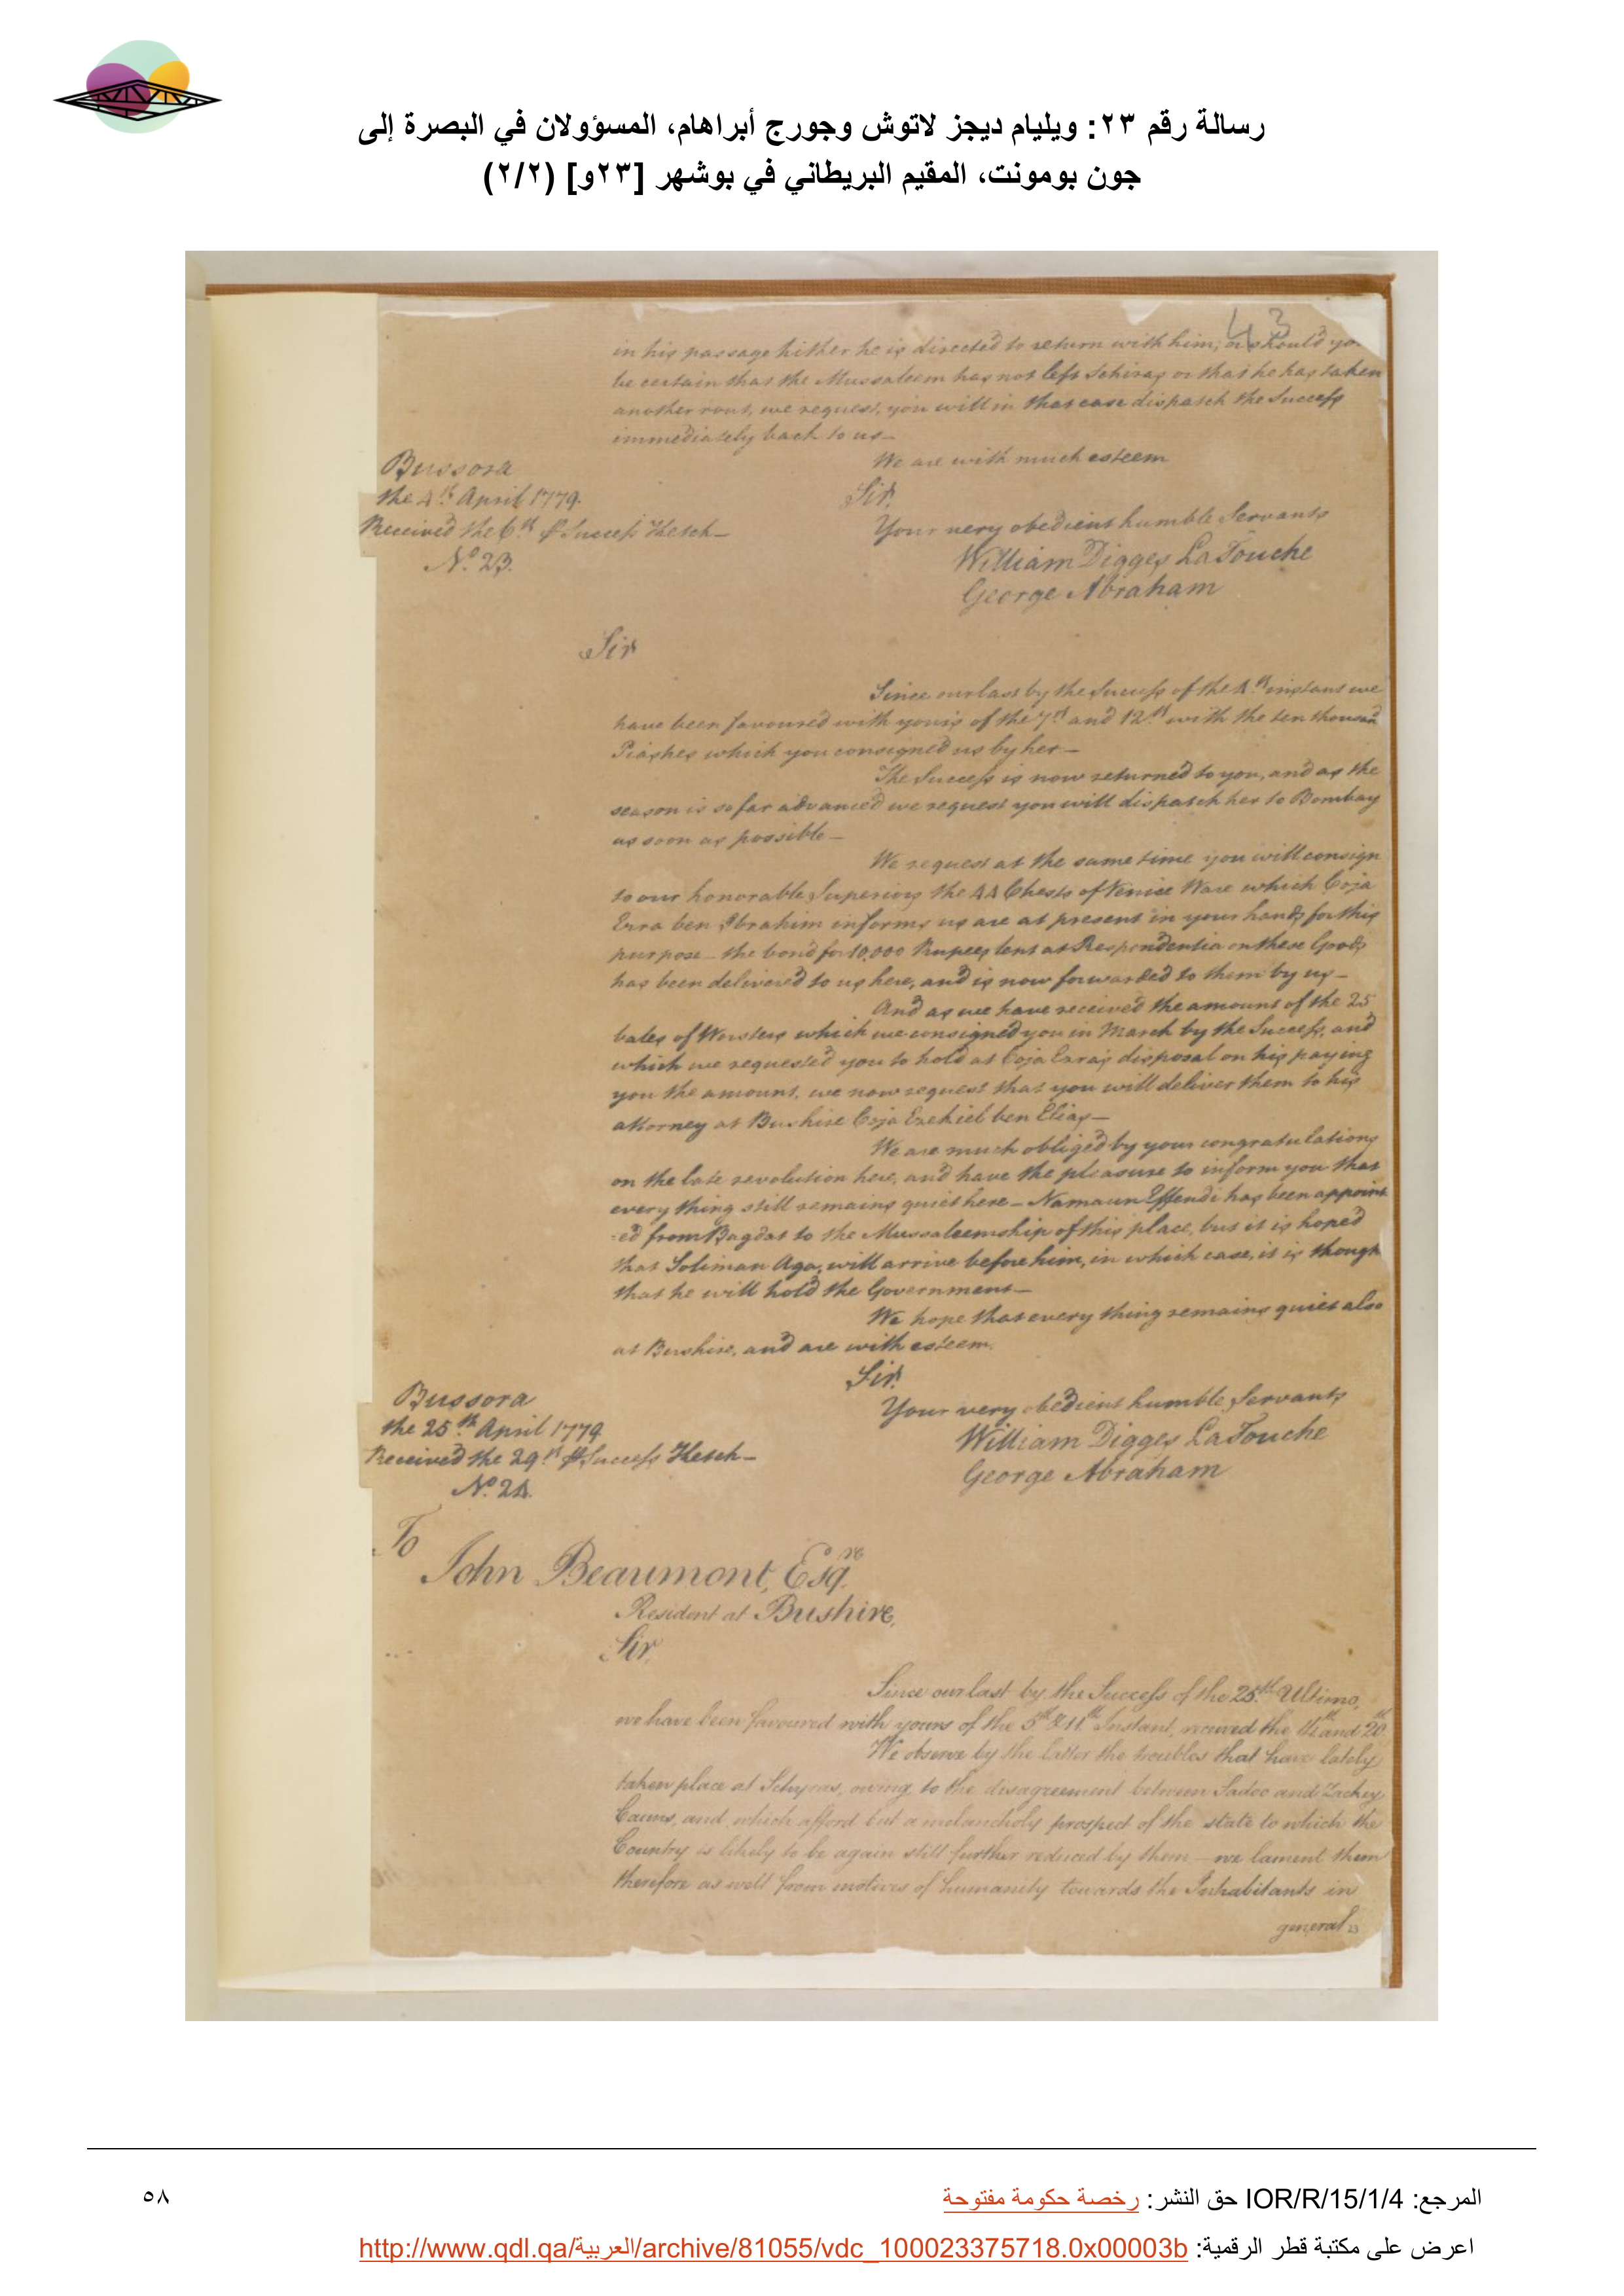 رسالة رقم ٢٣: ويليام ديجز لاتوش وجورج أبراهام، المسؤولان في البصرة إلى
جون بومونت، المقيم البريطاني في بوشهر [٢٣و] (٢/٢)
43
in his passage hither he is directed to return with him; or should you
be certain that the Mussaleem has not left Schiras or that he has taken
another rout, we request, you will in that case dispatch the Success
immediately back to us—
We are with much esteem
Bussora
Sir,
the 4th April 1779.
Your very obedient humble Servants
Received the 6th ⅌ Success Ketch—
William Digges LaTouche
No. 23.
George Abraham
Sir
Since our last by the Success of the 4th instant we
have been favoured with yours of the 7th and 12th with the ten thousand
Piastres which you consigned us by her.—
The Success is now returned to you, and as the
season is so far advanced we request you will dispatch her to Bombay
as soon as possible—
We request at the same time you will consign
to our honorable Superiors the 44 Chests of Venice Ware which Coja
Ezra ben Abrahim informs us are at present in your hands for this
purpose— the bond for 10,000 Rupees lent at Respondentia on these Goods
has been delivered to us here, and is now forwarded to them by us—
And as we have received the amount of the 25
bales of Worsters which we consigned you in March by the Success, and
which we requested you to hold at Coja Ezra's disposal on his paying
you the amount, we now request that you will deliver them to his
attorney at Bushire Coja Ezekiel ben Elias—
We are much obliged by your congratulations
on the late revolution here, and have the pleasure to inform you that
every thing still remains quiet here— Namaun Effendi has been appoint
-ed from Bagdat to the Mussaleemship of this place, but it is hoped
that Soliman Aga, will arrive before him, in which case, it is though
that he will hold the Government—
We hope that every thing remains quiet also
at Bushire, and are with esteem.
Sir.
Bussora
Your very obedient humble Servants
the 25th April 1779
William Digges LaTouche
Received the 29th ⅌ Success Ketch—
George Abraham
No. 24.
To
John Beaumont, Esqre
Resident at Bushire,
Sir,
Since our last by the Success of the 25th Ultimo,
we have been favoured with yours of the 5th & 11th Instant, received the 11th and 20th
We observe by the latter the troubles that have lately
taken place at Schyras, owing to the disagreement between Sadoo and Zackey
Cauns, and which afford but a melancholy prospect of the state to which the
Country is likely to be again still further reduced by them— we lament them
therefore as well from motives of humanity towards the Inhabitants in
general
المرجع: IOR/R/15/1/4 حق النشر: رخصة حكومة مفتوحة
٥٨
اعرض على مكتبة قطر الرقمية: http://www.qdl.qa/العربية/archive/81055/vdc_100023375718.0x00003b